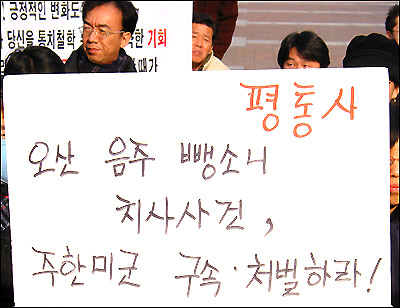 긍정적인 변화도
당신을 통치철학
한 기회
때가
평통사
오산 음주 뺑소니
치사사건,
주한미군 구속·처벌하라!